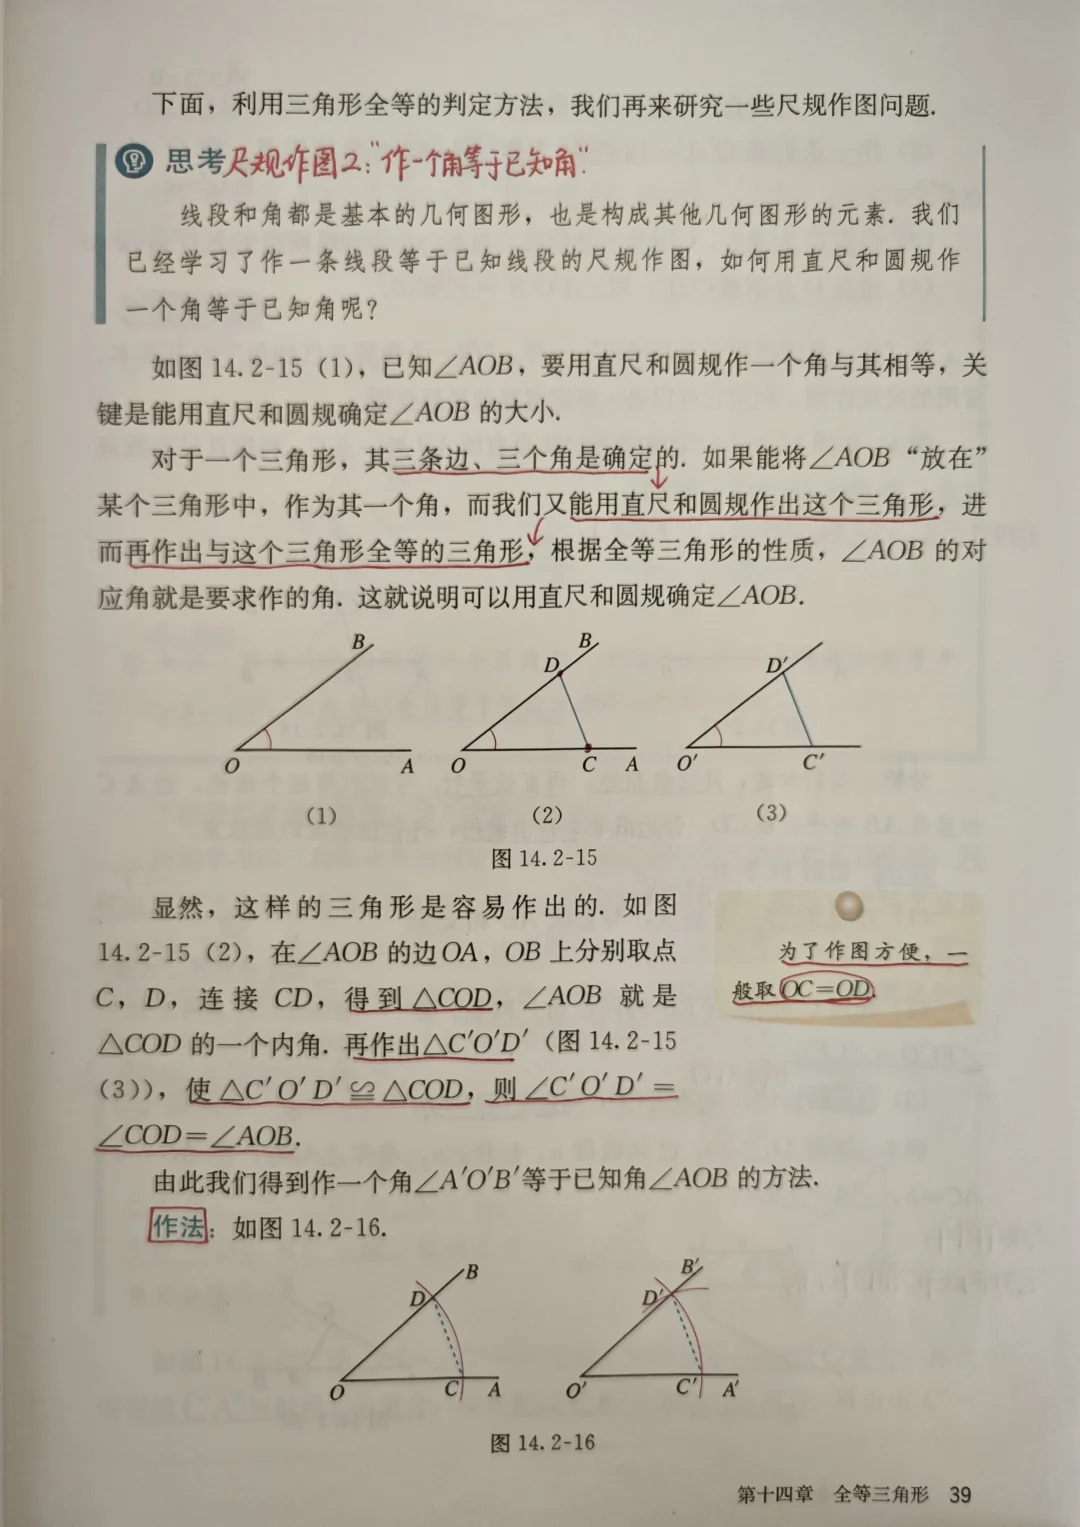 下面，利用三角形全等的判定方法，我们再来研究一些尺规作图问题.
思考 尺规作图2:"作一个角等于已知角".
线段和角都是基本的几何图形，也是构成其他几何图形的元素. 我们
已经学习了作一条线段等于已知线段的尺规作图，如何用直尺和圆规作
一个角等于已知角呢？
如图 14.2-15（1），已知∠AOB，要用直尺和圆规作一个角与其相等，关
键是能用直尺和圆规确定∠AOB 的大小.
对于一个三角形，其三条边、三个角是确定的. 如果能将∠AOB“放在”
某个三角形中，作为其一个角，而我们又能用直尺和圆规作出这个三角形，进
而再作出与这个三角形全等的三角形，根据全等三角形的性质，∠AOB 的对
应角就是要求作的角. 这就说明可以用直尺和圆规确定∠AOB.
B
O
A
（1）
B
D
O
C
A
（2）
D′
O′
C′
（3）
图 14.2-15
显然，这样的三角形是容易作出的. 如图
14.2-15（2），在∠AOB 的边OA，OB 上分别取点
C，D，连接 CD，得到 △COD，∠AOB 就是
△COD 的一个内角. 再作出△C′O′D′（图 14.2-15
（3）），使 △C′O′D′≌△COD，则 ∠C′O′D′＝
∠COD＝∠AOB.
为了作图方便，一
般取 OC＝OD.
由此我们得到作一个角∠A′O′B′等于已知角∠AOB 的方法.
作法：如图 14.2-16.
B
D
O
C
A
B′
D′
O′
C′
A′
图 14.2-16
第十四章 全等三角形 39